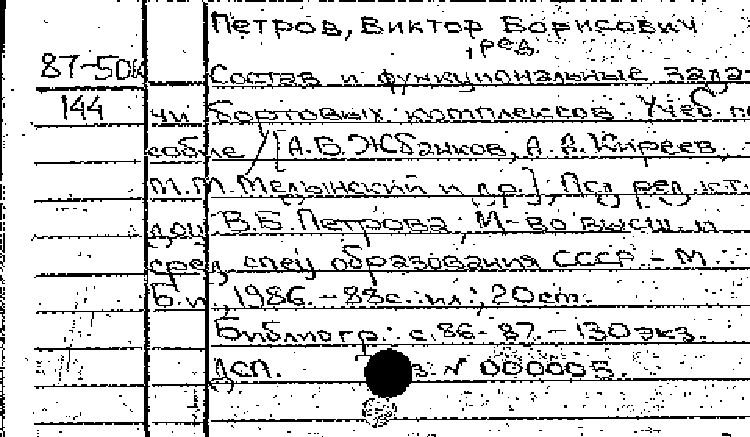 Петров, Виктор Борисович
, ред.
87-50
Состав и функциональные зада-
144
чи бортовых комплексов: Учеб. по-
собие / [А.Б. Жбанков, А.А. Киреев,
М.М. Мельинский и др.]; Под ред. к.т.н.
доц. В.Б. Петрова; М-во высш. и
сред. спец. образования СССР. - М.:
Б.и., 1986. - 88с.: ил.; 20см.
Библиогр.: с.86-87. - 130 экз.
ДСП. з. N 000005.